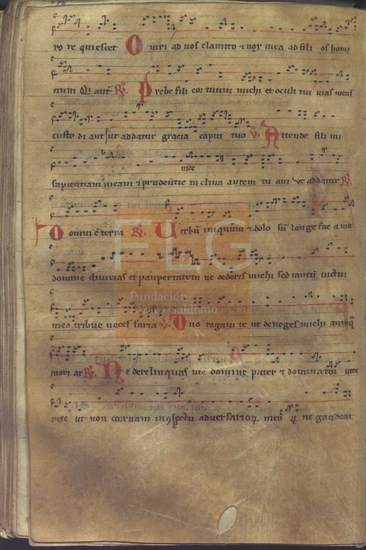 ro re quiescet O viri ad vos clamito ⁊ vox mea ad fili os homi
num Qui aut ℟ Prebe fili cor tuum michi et oculi tui vias meas
custo di ant Ut addatur gracia capiti tuo ℣ Attende fili mi
sapientiam meam et prudentie in clina aurem tu am Ut addatur ℟
Domini est terra ℟ Verbum iniquum ⁊ dolo sum longe fac a me
domine divicias et paupertatem ne dederis michi sed tantum victui
meo tribue necessaria ℣ Duo rogavi te ne deneges michi anteq
mori ar ℟ Ne derelinquas me domine pater ⁊ dominator vite
mee ut non corruam in conspectu adversariorum meorum ne gaudeat
FLG
Fundación